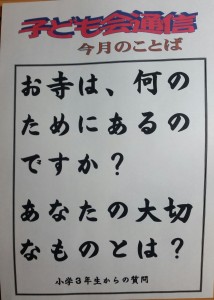 子ども会通信
今月のことば
お寺は、何の
ためにあるの
ですか？
あなたの大切
なものとは？
小学３年生からの質問